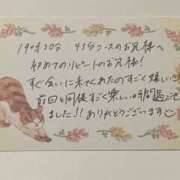 19時30分 45分コースのお兄様へ
初めてのリピートのお兄様!
すぐ会いにきてくれたのすごく嬉しい
前回と同様すごく楽しい時間過ごせ
ました!!ありがとうございます